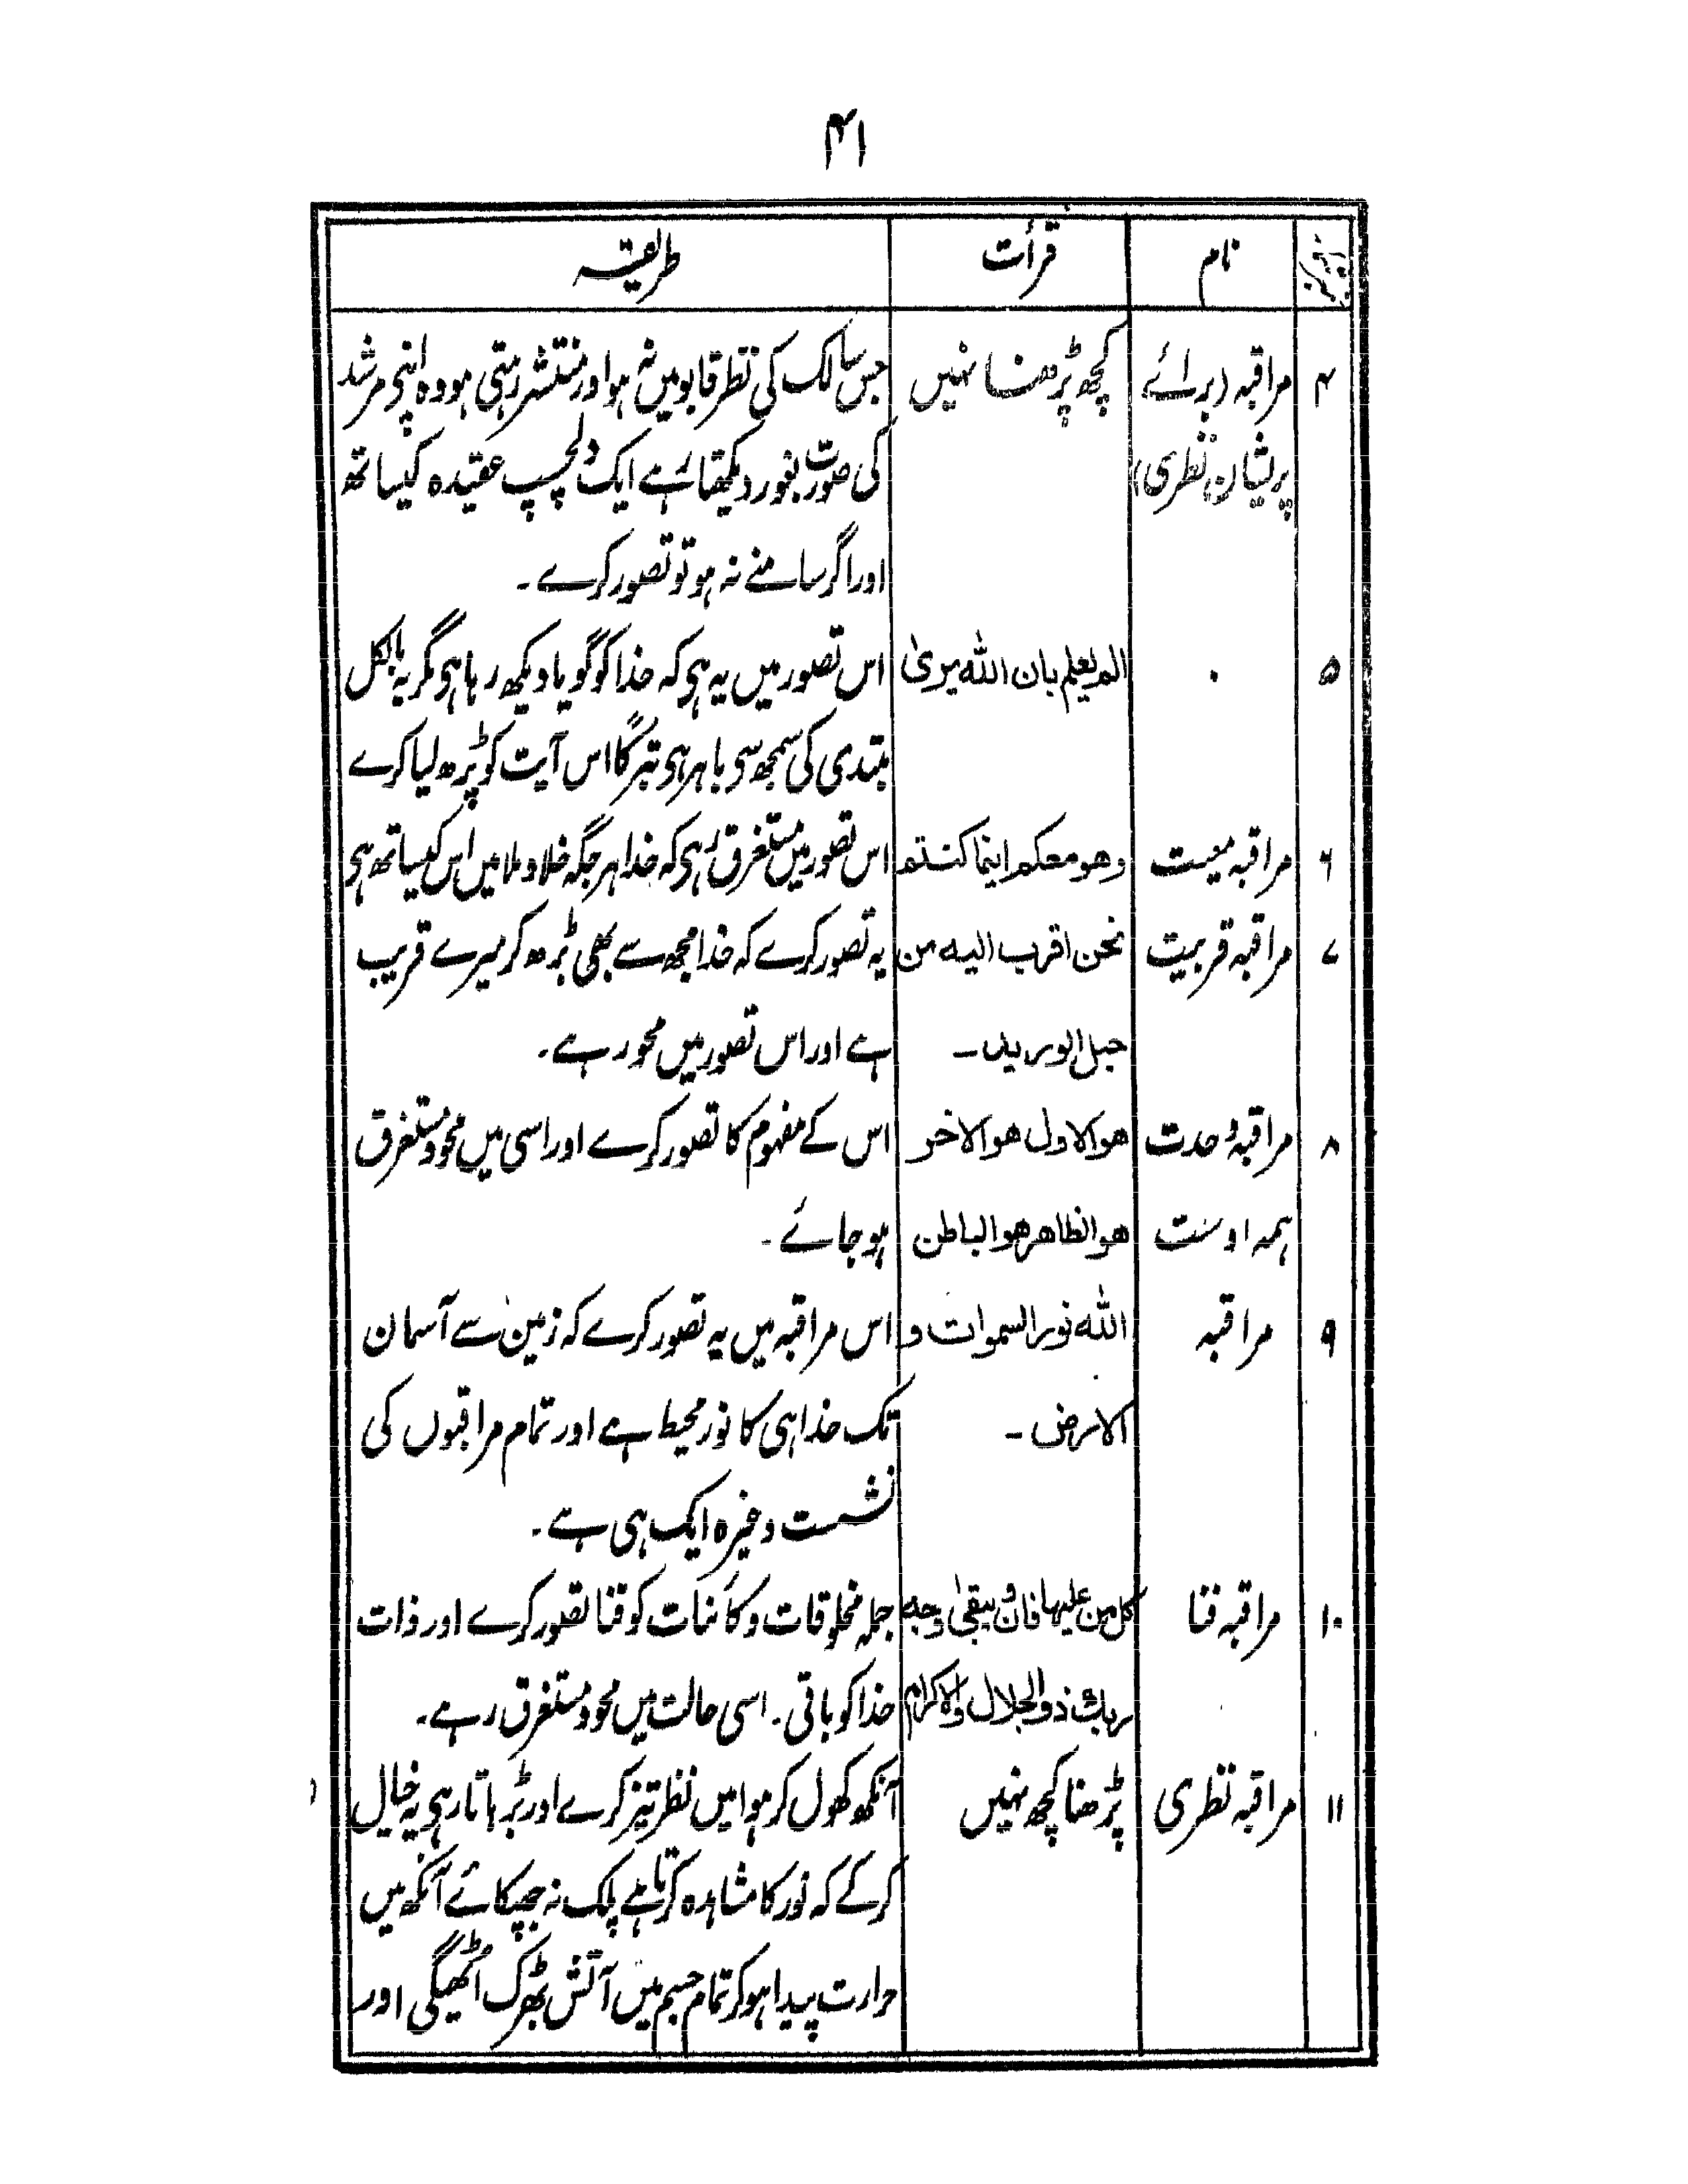 ۴۱
نام قرأت طریقہ
۴ مراقبہ (برائے کچھ پڑھنا نہیں جس سالک کی نظر قابو میں نہ ہو اور منتشر رہتی ہو وہ اپنی مرشد
پریشان نظری) کی صورت بغور دیکھتا رہے ایک دلچسپ عقیدہ کیساتھ
اور اگر سامنے نہ ہو تو تصور کرے ۔
۵ ۰ الم یعلم بان اللہ یریٰ اس تصور میں یہ ہی کہ خدا کو گویا دیکھ رہا ہی مگر یہ بالکل
مبتدی کی سمجھ سی باہر ہی تبرگا اس آیت کو پڑھ لیا کرے
۶ مراقبہ معیت وھو معکم اینما کنتم اس تصور میں مستغرق رہی کہ خدا ہر جگہ خلا و ملا میں اس کیساتھ ہی
۷ مراقبہ قربیت نحن اقرب الیہ من یہ تصور کرے کہ خدا مجھ سے بھی بڑھ کر میرے قریب
حبل الورید ۔ ہے اور اس تصور میں محو رہے ۔
۸ مراقبۂ وحدت ھو الاول ھو الاخر اس کے مفہوم کا تصور کرے اور اسی میں محو و مستغرق
ہمہ اوست ھو الظاھر ھو الباطن ہو جائے ۔
۹ مراقبہ اللہ نور السموات و اس مراقبہ میں یہ تصور کرے کہ زمین سے آسمان
الارض ۔ تک خدا ہی کا نور محیط ہے اور تمام مراقبوں کی
نشست وغیرہ ایک ہی ہے ۔
۱۰ مراقبہ فنا کل من علیہا فان و یبقیٰ وجہ جملہ مخلوقات و کائنات کو فنا تصور کرے اور ذات
ربک ذو الجلال والاکرام خدا کو باقی ۔ اسی حالت میں محو و مستغرق رہے ۔
۱۱ مراقبہ نظری پڑھنا کچھ نہیں آنکھ کھول کر ہوا میں نظر تیز کرے اور بڑہاتا رہی یہ خیال
کر کے کہ نور کا مشاہدہ کرتا ہے پلک نہ جھپکائے آنکھ میں
حرارت پیدا ہو کر تمام جسم میں آتش بھڑک اٹھیگی اور